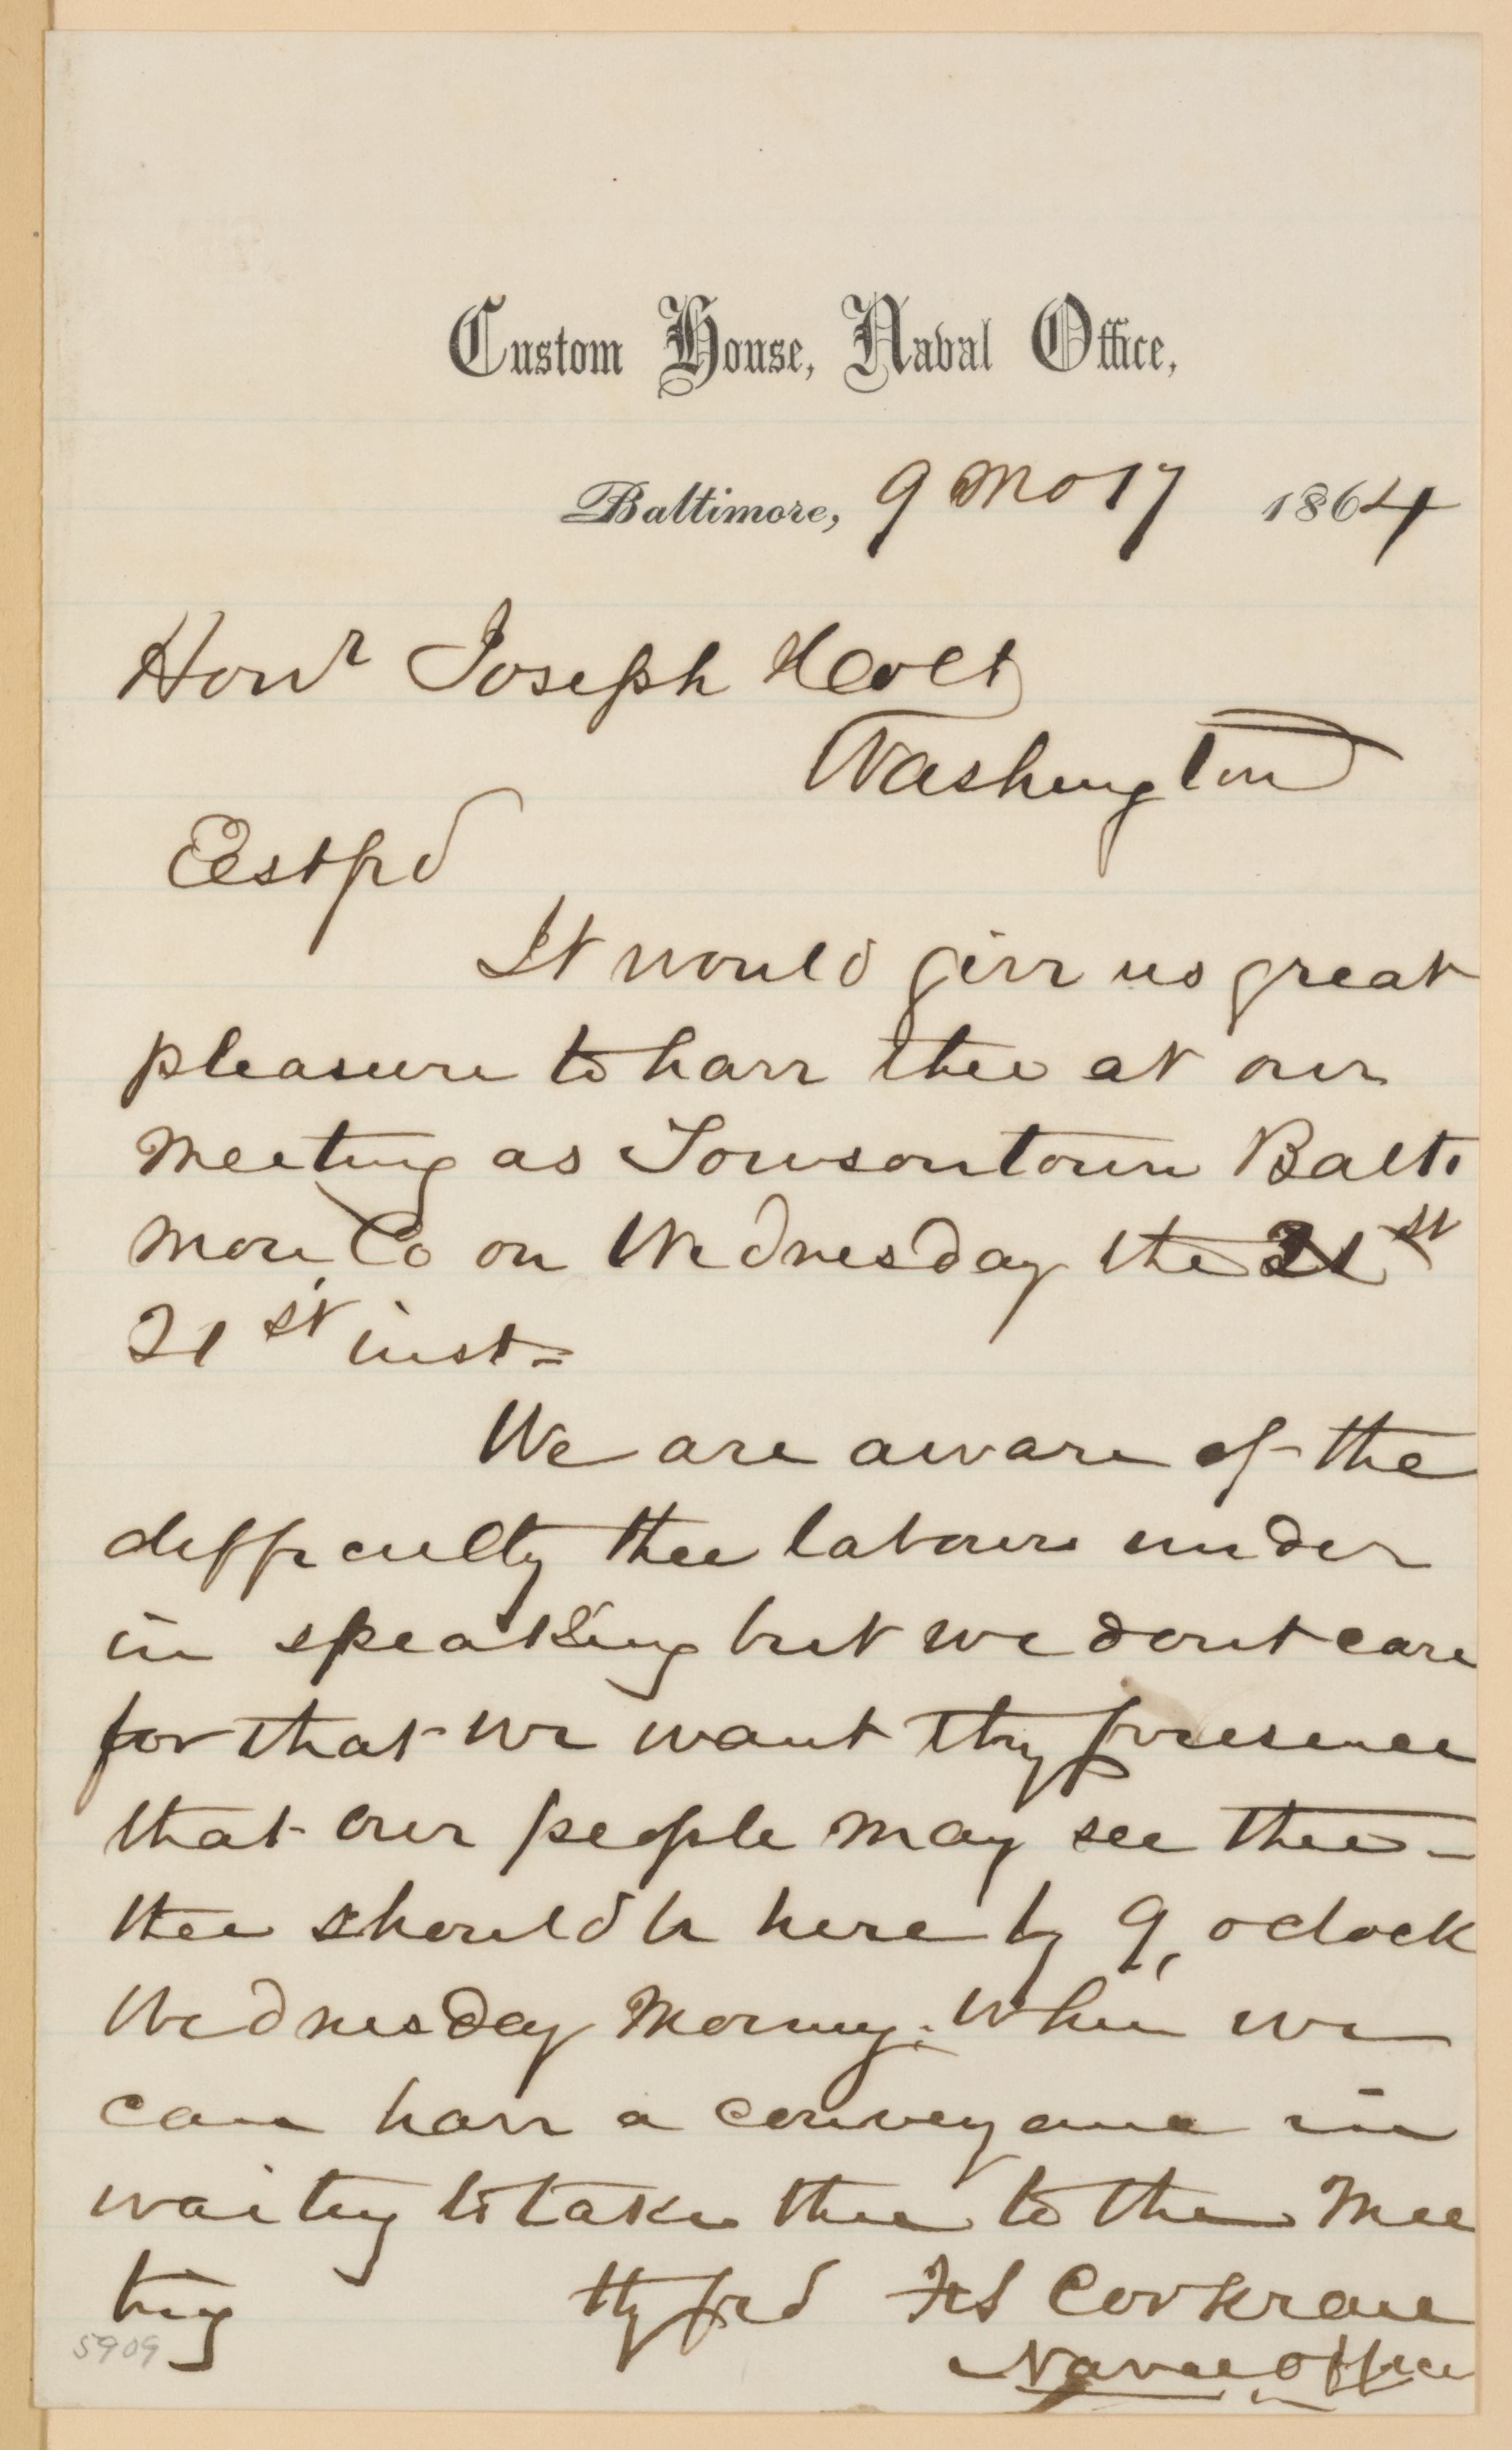 Custom House, Naval Office,
Baltimore, 9 Mo 17 1864
Honr Joseph Holt
Washington
Est frd
It would give us great
pleasure to have thee at our
Meeting as Towsontown Balti
more Co on Wednesday the 21st
21st inst=
We are aware of the
difficulty thee labours under
in speaking but we dont care
for that we want thy presence
that our people may see thee-
thee should be here by 9, oclock
Wednesday Morning. When we
can have a conveyance in
waiting to take thee to the Mee
ting thy frd Fs Corkran
Naval Office
5909